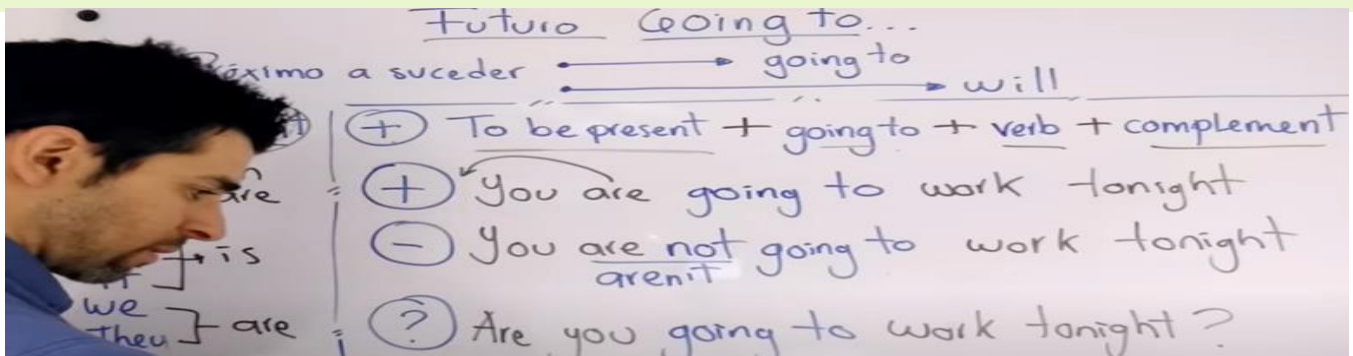 Futuro Going to...
Próximo a suceder going to
will
(+) To be present + going to + verb + complement
are (+) You are going to work tonight
is (-) You are not going to work tonight
aren't
we
they are (?) Are you going to work tonight?